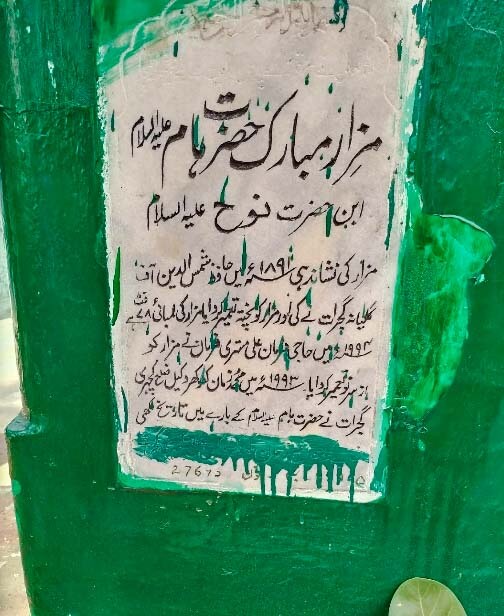 مزار مبارک حضرت ہام علیہ السلام
ابن حضرت نوح علیہ السلام
مزار کی نشاندہی ۱۸۹۱ء میں حافظ شمس الدین آف
گلیانہ گجرات نے کی اور مزار کو پختہ تعمیر کروایا مزار کی لمبائی ۷۸ فٹ ہے
۱۹۹۴ء میں حاجی فرمان علی مستری فرمان نے مزار کو
از سر نو تعمیر کروایا ۱۹۹۳ء میں محمد زمان کھوکھر وکیل ضلع کچہری
گجرات نے حضرت ہام علیہ السلام کے بارے میں تاریخ لکھی
2767